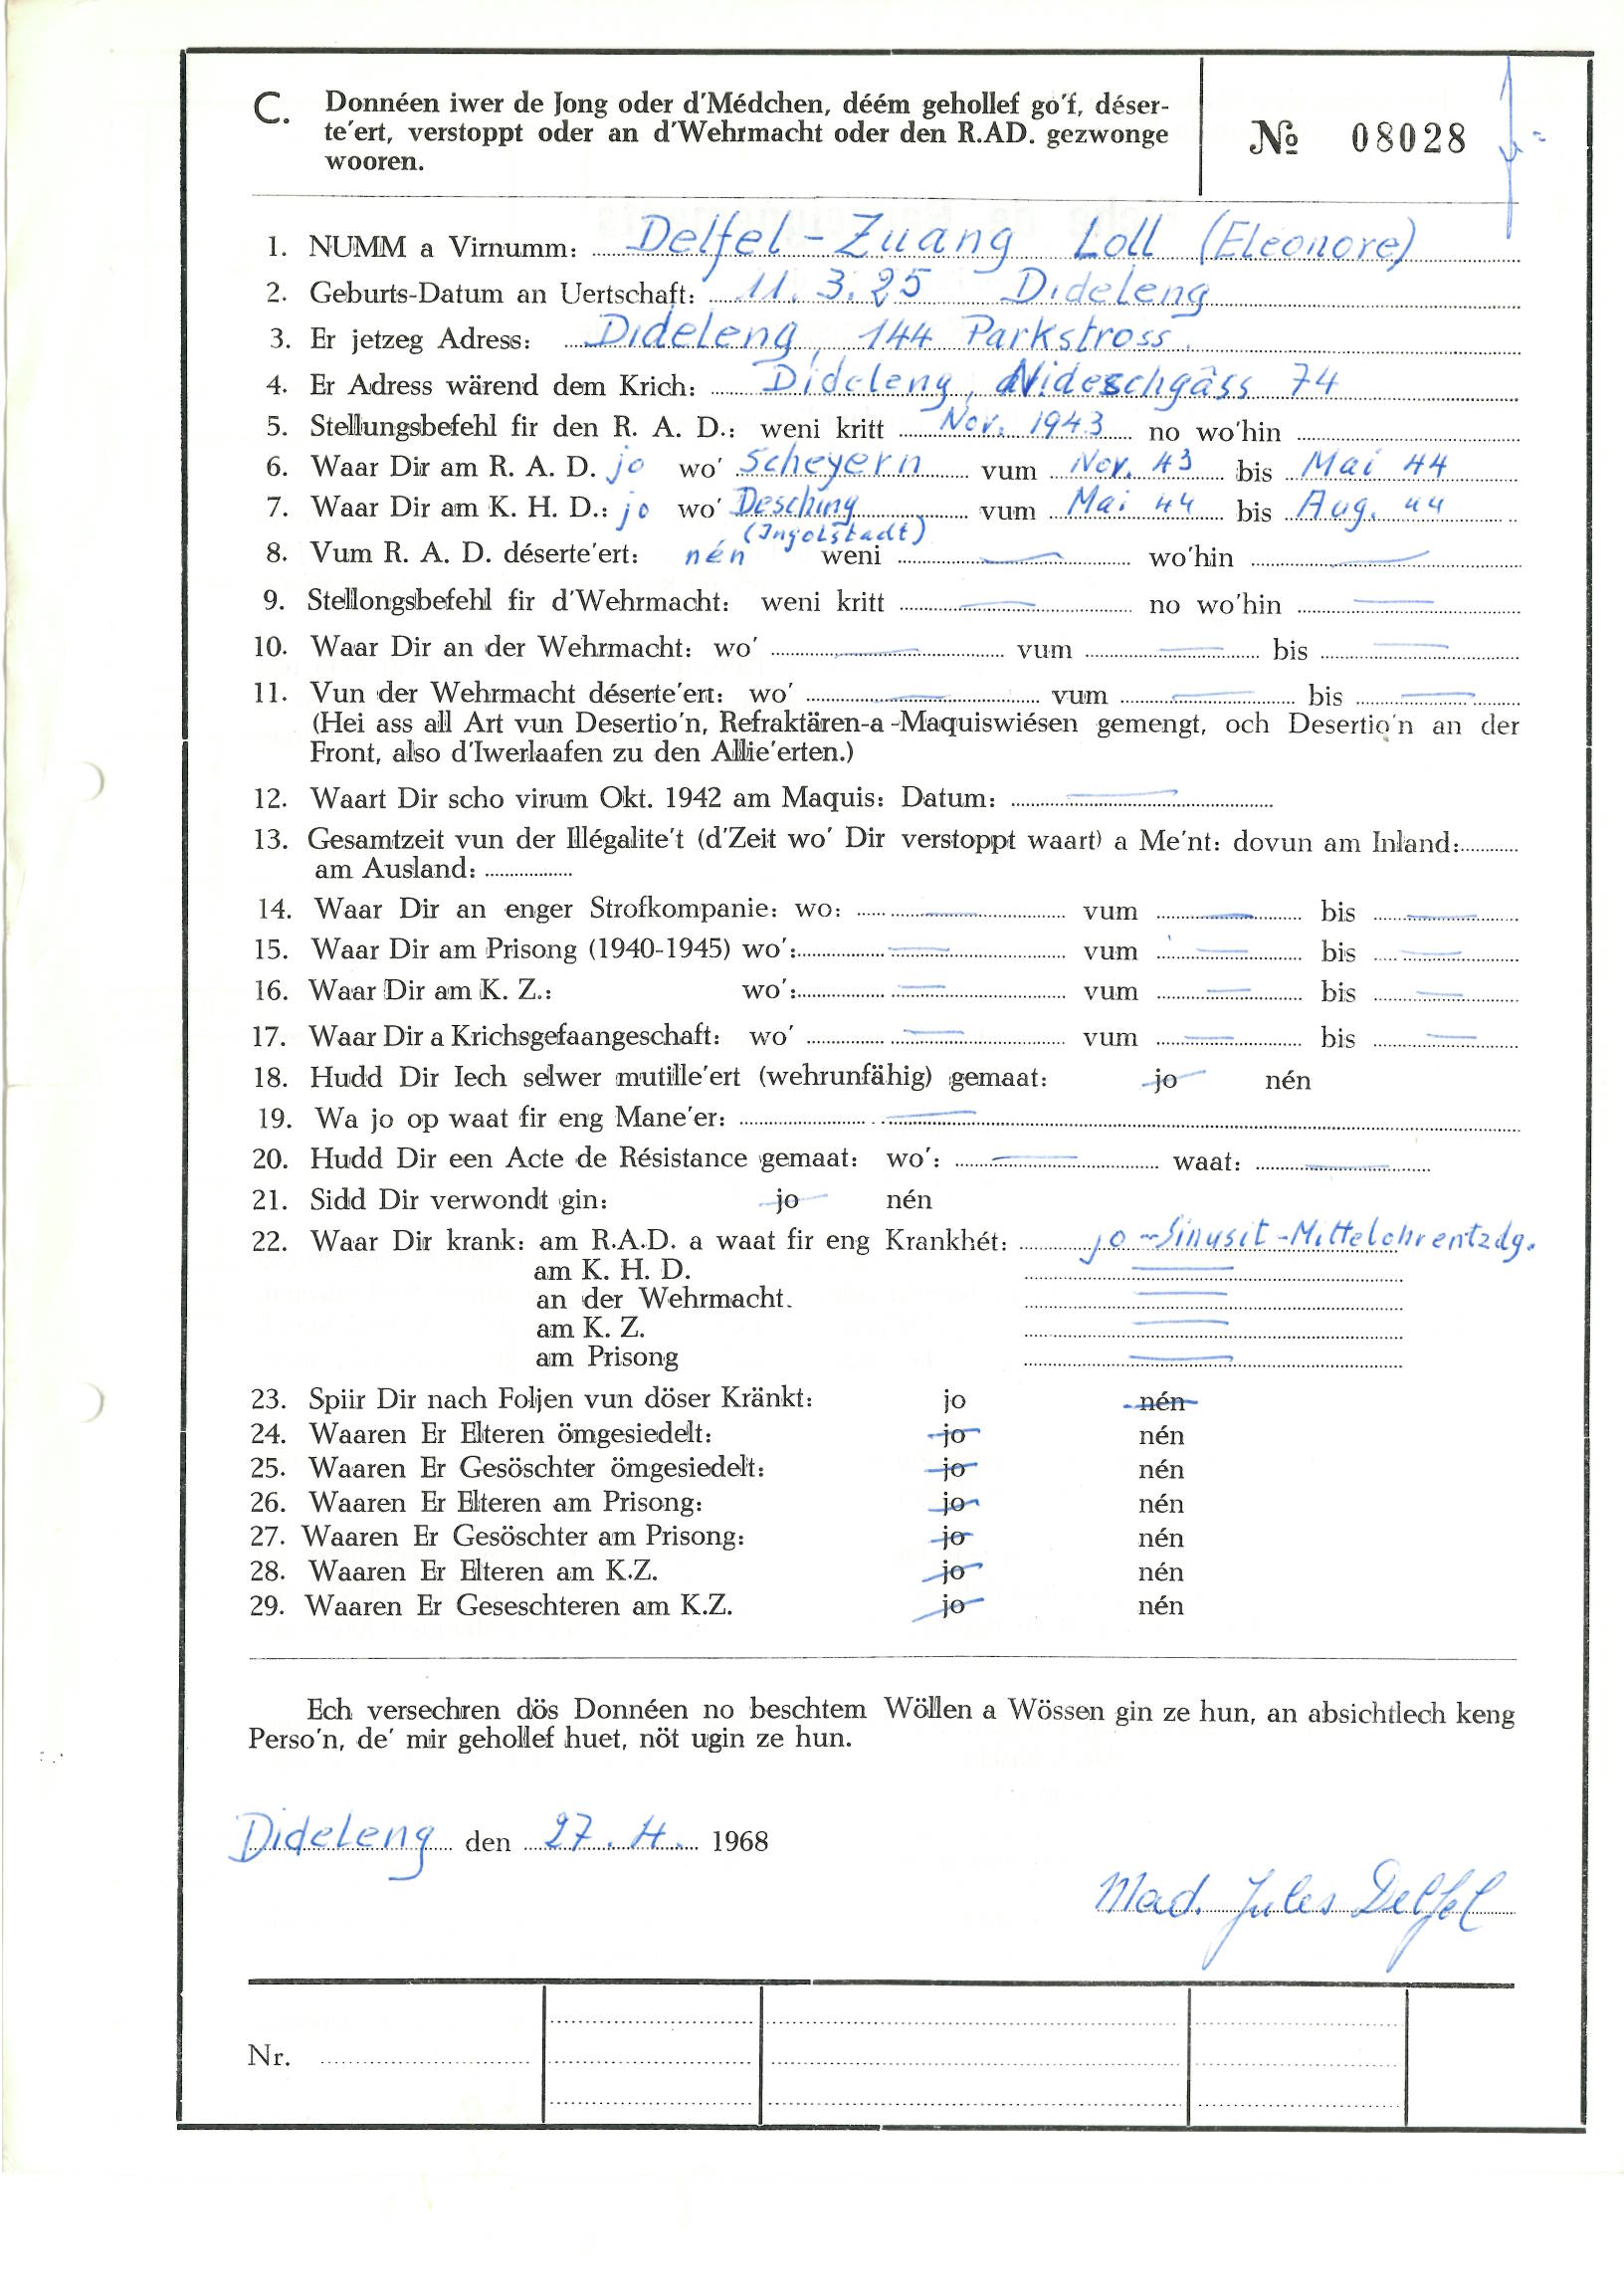 C. Donnéen iwer de Jong oder d'Médchen, déém gehollef go'f, déser-
te'ert, verstoppt oder an d'Wehrmacht oder den R.AD. gezwonge
wooren.
№ 08028
1. NUMM a Virnumm: Delfel-Zuang Loll (Eleonore)
2. Geburts-Datum an Uertschaft: 11.3.25 Dideleng
3. Er jetzeg Adress: Dideleng, 144 Parkstross.
4. Er Adress wärend dem Krich: Dideleng, Nideschgâss 74
5. Stellungsbefehl fir den R. A. D.: weni kritt Nov. 1943 no wo'hin
6. Waar Dir am R. A. D. jo wo' Scheyern vum Nov. 43 bis Mai 44
7. Waar Dir am K. H. D.: jo wo' Desching vum Mai 44 bis Aug. 44
(Ingolstadt)
8. Vum R. A. D. déserte'ert: nén weni — wo'hin —
9. Stellongsbefehl fir d'Wehrmacht: weni kritt — no wo'hin —
10. Waar Dir an der Wehrmacht: wo' — vum — bis —
11. Vun der Wehrmacht déserte'ert: wo' — vum — bis —
(Hei ass all Art vun Desertio'n, Refraktären-a-Maquiswiésen gemengt, och Desertio'n an der
Front, also d'Iwerlaafen zu den Allie'erten.)
12. Waart Dir scho virum Okt. 1942 am Maquis: Datum: —
13. Gesamtzeit vun der Illégalite't (d'Zeit wo' Dir verstoppt waart) a Me'nt: dovun am Inland:
am Ausland:
14. Waar Dir an enger Strofkompanie: wo: — vum — bis —
15. Waar Dir am Prisong (1940-1945) wo': — vum — bis —
16. Waar Dir am K. Z.: wo': — vum — bis —
17. Waar Dir a Krichsgefaangeschaft: wo' — vum — bis —
18. Hudd Dir Iech selwer mutille'ert (wehrunfähig) gemaat: jo nén
19. Wa jo op waat fir eng Mane'er: —
20. Hudd Dir een Acte de Résistance gemaat: wo': — waat: —
21. Sidd Dir verwondt gin: jo nén
22. Waar Dir krank: am R.A.D. a waat fir eng Krankhét: jo - Sinusit - Mittelohrentzdg.
am K. H. D. —
an der Wehrmacht. —
am K. Z. —
am Prisong —
23. Spiir Dir nach Foljen vun döser Kränkt: jo nén
24. Waaren Er Elteren ömgesiedelt: jo nén
25. Waaren Er Gesöschter ömgesiedelt: jo nén
26. Waaren Er Elteren am Prisong: jo nén
27. Waaren Er Gesöschter am Prisong: jo nén
28. Waaren Er Elteren am K.Z. jo nén
29. Waaren Er Geseschteren am K.Z. jo nén
Ech versechren dös Donnéen no beschtem Wöllen a Wössen gin ze hun, an absichtlech keng
Perso'n, de' mir gehollef huet, nöt ugin ze hun.
Dideleng den 27. 4. 1968
Mad. Jules Delfel
Nr.